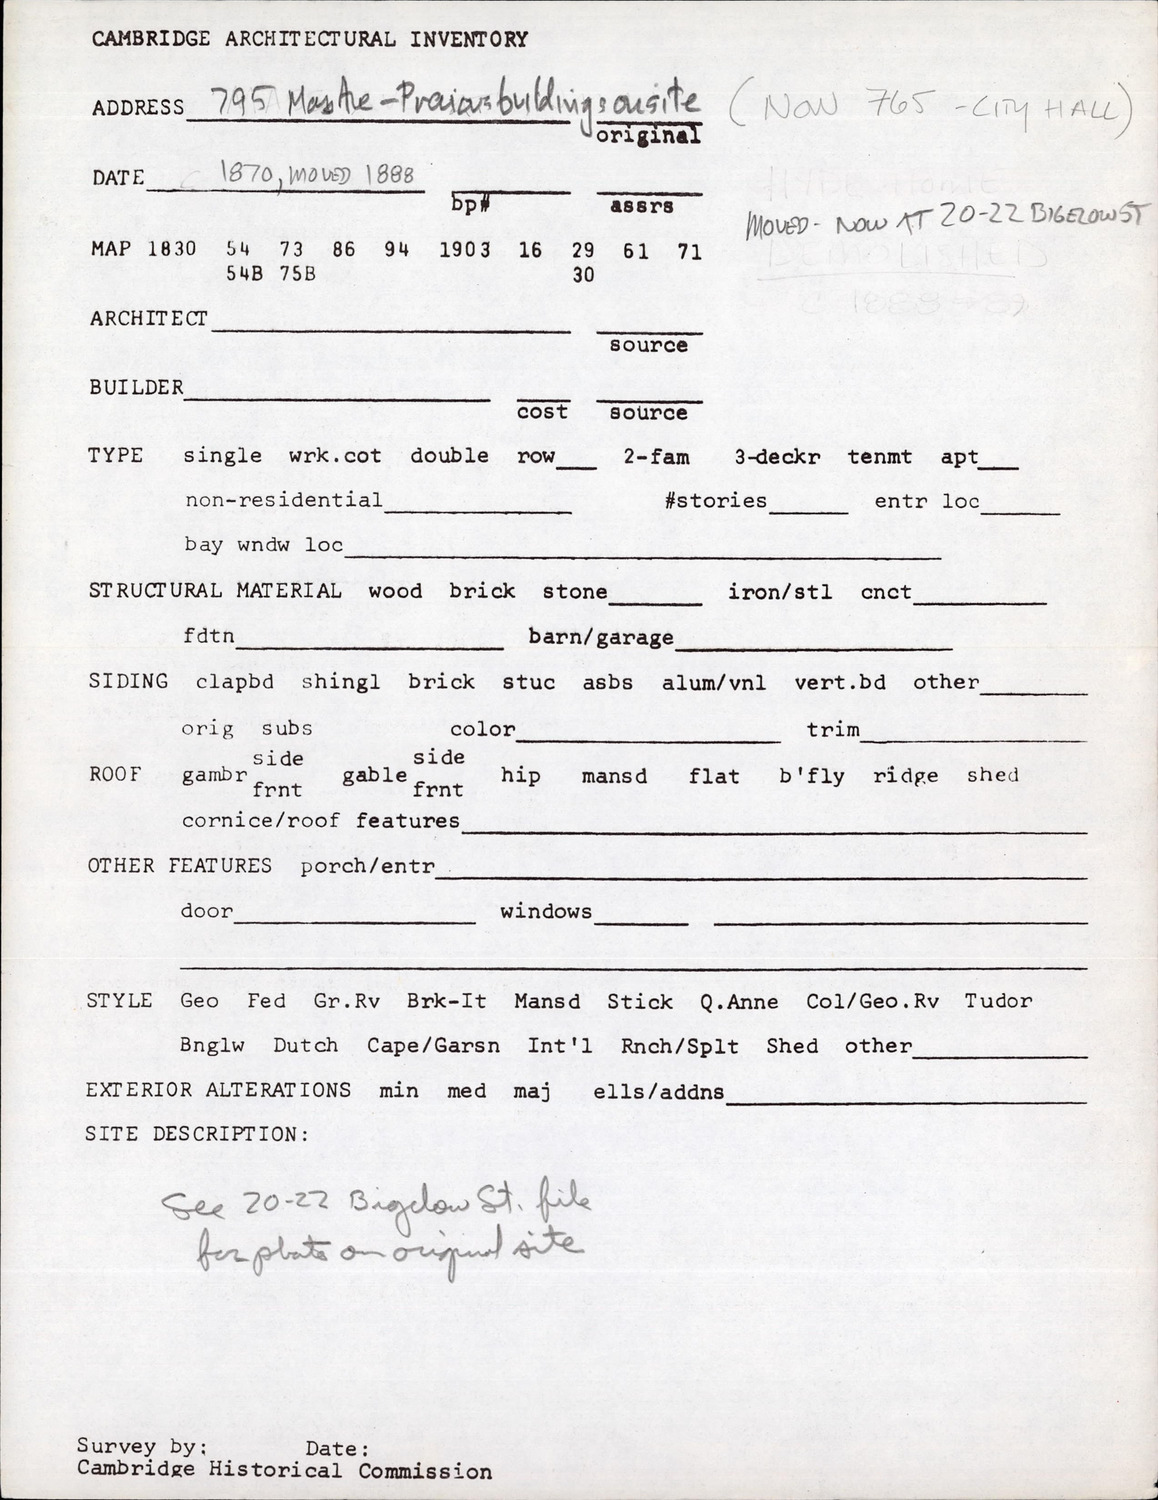 CAMBRIDGE ARCHITECTURAL INVENTORY
ADDRESS 795 Mass Ave - Previous buildings on site (NOW 765 - CITY HALL)
original
DATE C 1870, MOVED 1888
bp# assrs
MOVED - NOW AT 20-22 BIGELOW ST
MAP 1830 54 73 86 94 1903 16 29 61 71
54B 75B 30
DEMOLISHED
1888-89
ARCHITECT
source
BUILDER
cost source
TYPE single wrk.cot double row 2-fam 3-deckr tenmt apt
non-residential #stories entr loc
bay wndw loc
STRUCTURAL MATERIAL wood brick stone iron/stl cnct
fdtn barn/garage
SIDING clapbd shingl brick stuc asbs alum/vnl vert.bd other
orig subs color trim
side side
ROOF gambr gable hip mansd flat b'fly ridge shed
frnt frnt
cornice/roof features
OTHER FEATURES porch/entr
door windows
STYLE Geo Fed Gr.Rv Brk-It Mansd Stick Q.Anne Col/Geo.Rv Tudor
Bnglw Dutch Cape/Garsn Int'l Rnch/Splt Shed other
EXTERIOR ALTERATIONS min med maj ells/addns
SITE DESCRIPTION:
See 20-22 Bigelow St. file
for photo on original site
Survey by: Date:
Cambridge Historical Commission